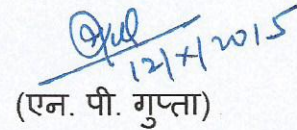 12/X/2015
(एन. पी. गुप्ता)